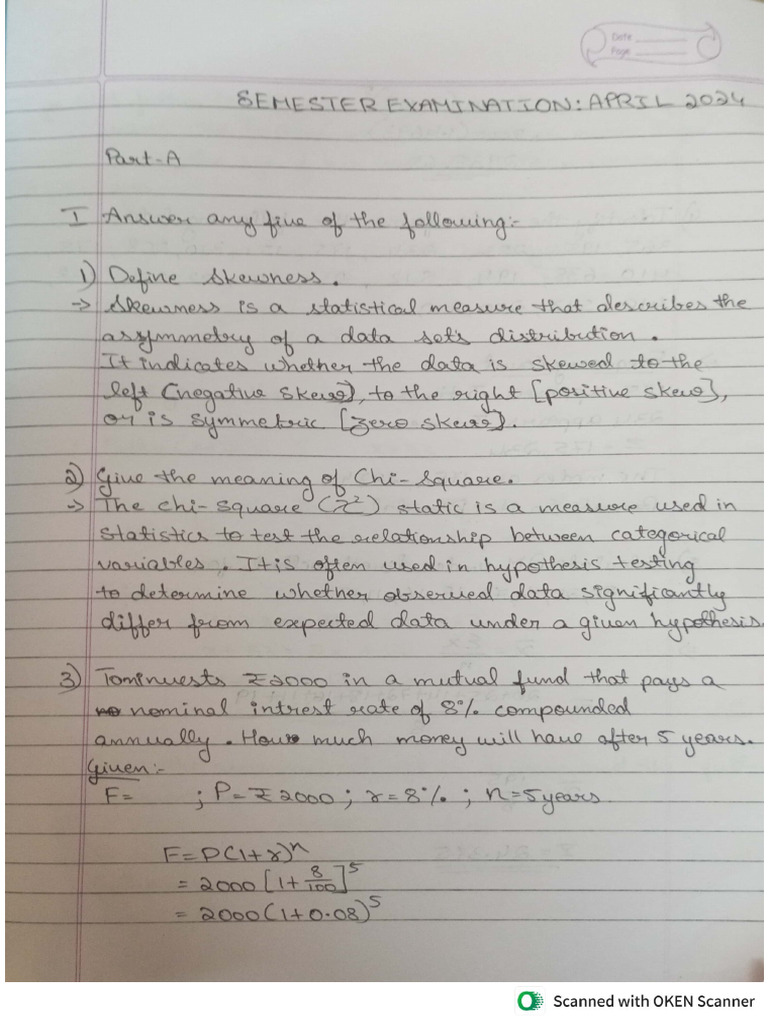 Date
Page
SEMESTER EXAMINATION: APRIL 2024
Part-A
I Answer any five of the following:-
1) Define Skewness.
→ Skewness is a statistical measure that describes the
assymmetry of a data set's distribution.
It indicates whether the data is skewed to the
left (negative skew), to the right [positive skew],
or is symmetric [zero skew].
2) Give the meaning of Chi-Square.
→ The chi-square (χ²) static is a measure used in
statistics to test the relationship between categorical
variables. It is often used in hypothesis testing
to determine whether observed data significantly
differ from expected data under a given hypothesis.
3) Tom invests ₹2000 in a mutual fund that pays a
nominal intrest rate of 8% compounded
annually. How much money will have after 5 years.
Given:-
F= ; P=₹2000; r=8%; n=5years
F=P(1+r)ⁿ
= 2000 [1+ 8/100]⁵
= 2000(1+0.08)⁵
Scanned with OKEN Scanner